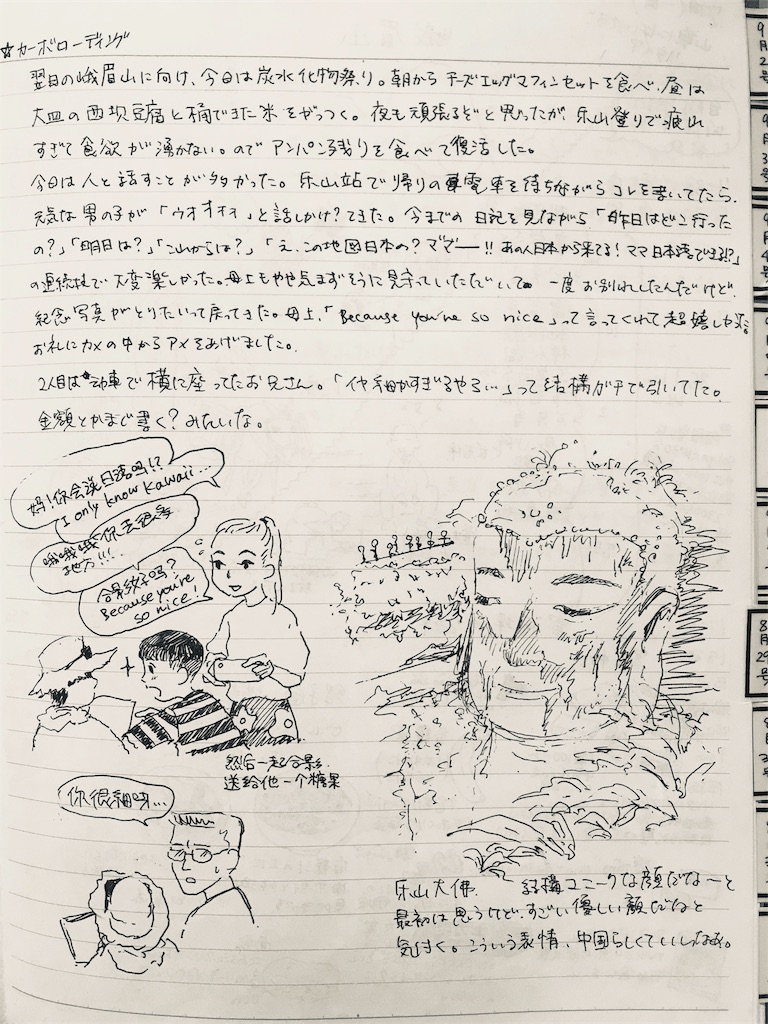 ☆カーボローディング
翌日の峨眉山に向け、今日は炭水化物祭り。朝からチーズエッグマフィンセットを食べ、昼は
大皿の西坝豆腐と桶できた米をがっつく。夜も頑張るぞと思ったが、乐山登りで疲れ
すぎて食欲が湧かない。のでアンパン残りを食べて復活した。
今日は人と話すことが多かった。乐山站で帰りの電車を待ちながらコレを書いてたら、
元気な男の子が「ウオオォォ」と話しかけ?てきた。今までの日記を見ながら「昨日はどこ行った
の?」「明日は?」「こいからは?」「え、この地図日本の?マヂー!!あの人日本から来てる!ママ日本語できる!?」
の連続技で大変楽しかった。母上もやや気まずそうに見守っていただいて。一度お別れしたんだけど、
紀念写真がとりたいって戻ってきた。母上、「Because you're so nice」って言ってくれて超嬉しかった。
お礼にカメの中からアメをあげました。
2人目は动車で横に座ってたお兄さん。「イヤ細かすぎるやろ…」って結構ガチで引いてた。
金額とかまじ書く?みたいな。
妈!你会说日语吗!?
I only know kawaii...
哦哦哦你去很多
地方!!!
合影好吗?
Because you're
so nice!
然后一起合影
送给他一个糖果
你很细呀...
乐山大佛、結構ユニークな顔だな〜と
最初は思うけど、すごい優しい顔だなと
気付く。こういう表情、中国らしくていいなぁ。
9月2号
9月3号
9月4号
8月29号